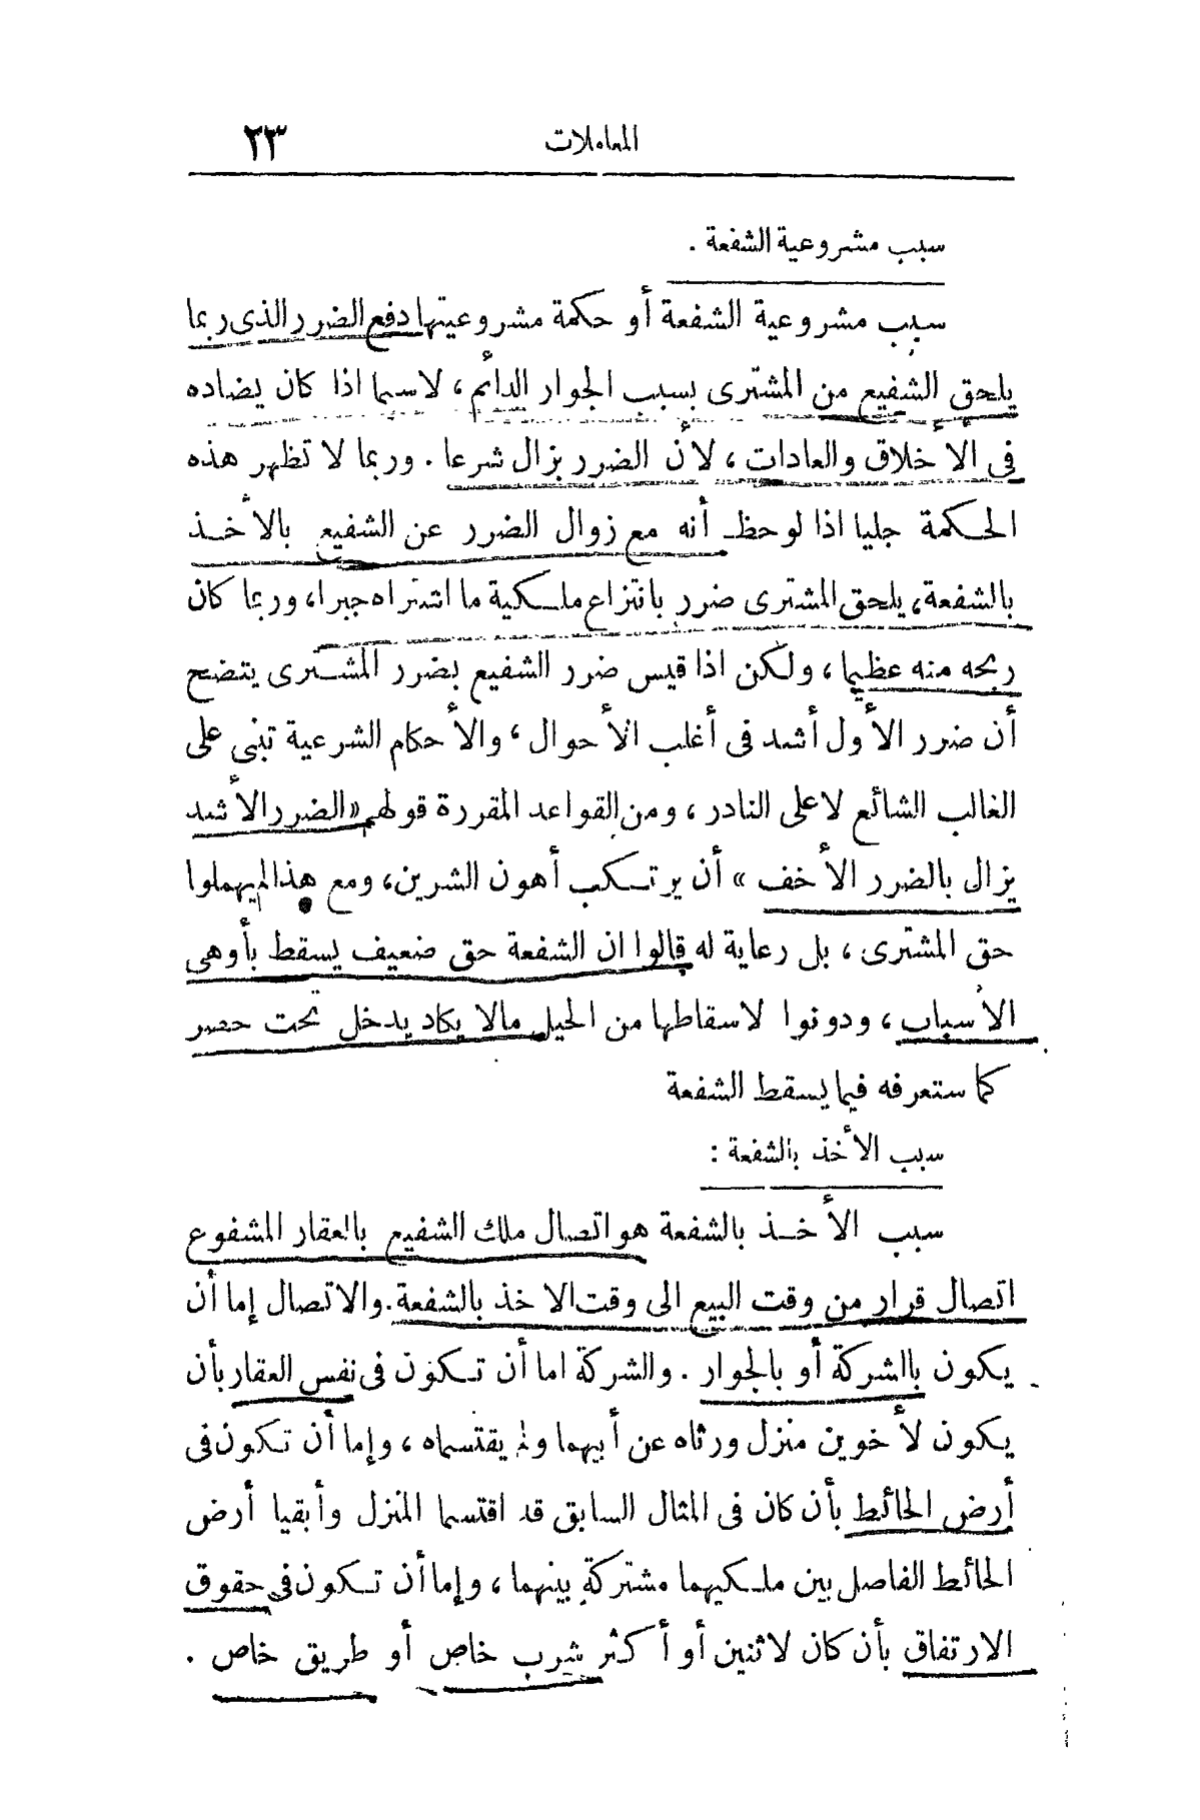 المعاملات ٢٣
سبب مشروعية الشفعة .
سبب مشروعية الشفعة أو حكمة مشروعيتها دفع الضرر الذى ربما
يلحق الشفيع من المشترى بسبب الجوار الدائم ، لاسيما اذا كان يضاده
فى الأخلاق والعادات ، لأن الضرر يزال شرعا . وربما لا تظهر هذه
الحكمة جليا اذا لوحظ أنه مع زوال الضرر عن الشفيع بالأخذ
بالشفعة، يلحق المشترى ضرر بانتزاع ملكية ما اشتراه جبرا، وربما كان
ربحه منه عظيما ، ولكن اذا قيس ضرر الشفيع بضرر المشترى يتضح
أن ضرر الأول أشد فى أغلب الأحوال ، والأحكام الشرعية تبنى على
الغالب الشائع لا على النادر ، ومن القواعد المقررة قولهم «الضرر الأشد
يزال بالضرر الأخف » أن يرتكب أهون الشرين، ومع هذا لم يهملوا
حق المشترى ، بل رعاية له قالوا ان الشفعة حق ضعيف يسقط بأوهى
الأسباب ، ودونوا لاسقاطها من الحيل مالا يكاد يدخل تحت حصر
كما ستعرفه فيما يسقط الشفعة
سبب الأخذ بالشفعة :
سبب الأخذ بالشفعة هو اتصال ملك الشفيع بالعقار المشفوع
اتصال قرار من وقت البيع الى وقت الاخذ بالشفعة . والاتصال إما أن
يكون بالشركة أو بالجوار . والشركة اما أن تكون فى نفس العقار بأن
يكون لأخوين منزل ورثاه عن أبيهما ولم يقتسماه ، وإما أن تكون فى
أرض الحائط بأن كان فى المثال السابق قد اقتسما المنزل وأبقيا أرض
الحائط الفاصل بين ملكيهما مشتركة بينهما ، وإما أن تكون فى حقوق
الارتفاق بأن كان لاثنين أو أكثر شرب خاص أو طريق خاص .